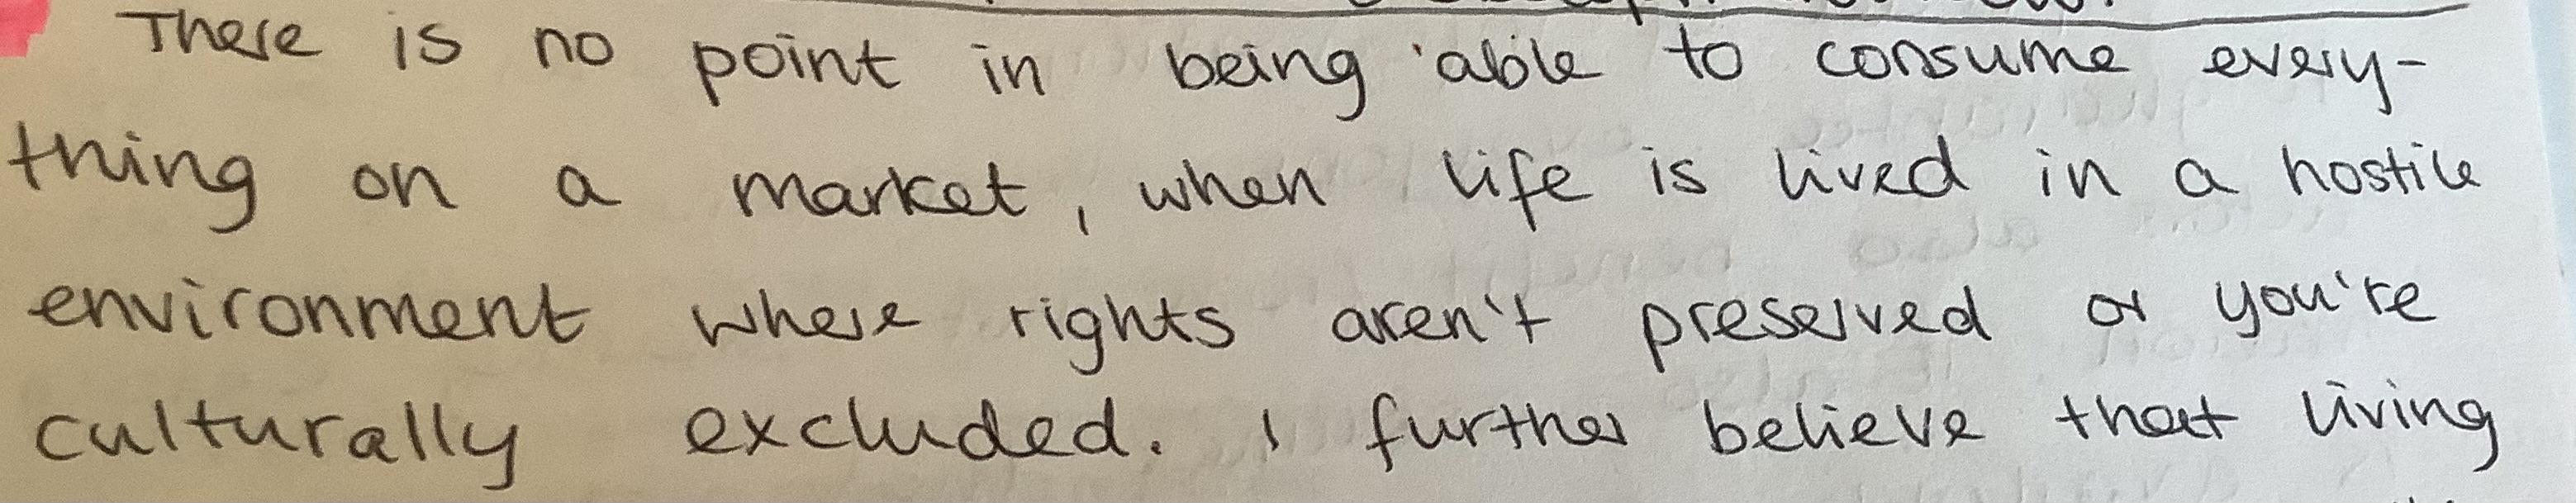 There is no point in being able to consume every-
thing on a market, when life is lived in a hostile
environment where rights aren't preserved or you're
culturally excluded. I further believe that living